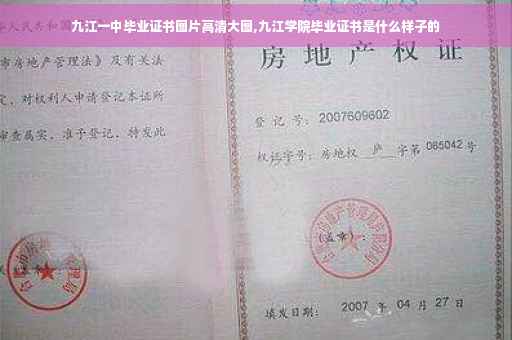 九江一中毕业证书图片高清大图,九江学院毕业证书是什么样子的
华人民共和国
市房地产管理法》及有关法
定，对权利人申请登记本证所
审查属实，准予登记，特发此
房地产权证
登记号：2007609602
权证字号：房地权 庐 字第 065042 号
(盖章)：
填发日期： 2007 年 04 月 27 日